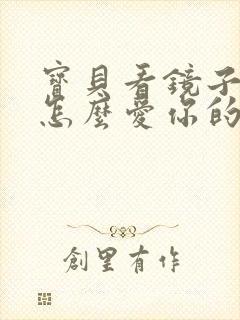 寶貝看鏡子
怎麼愛你的
創里有作